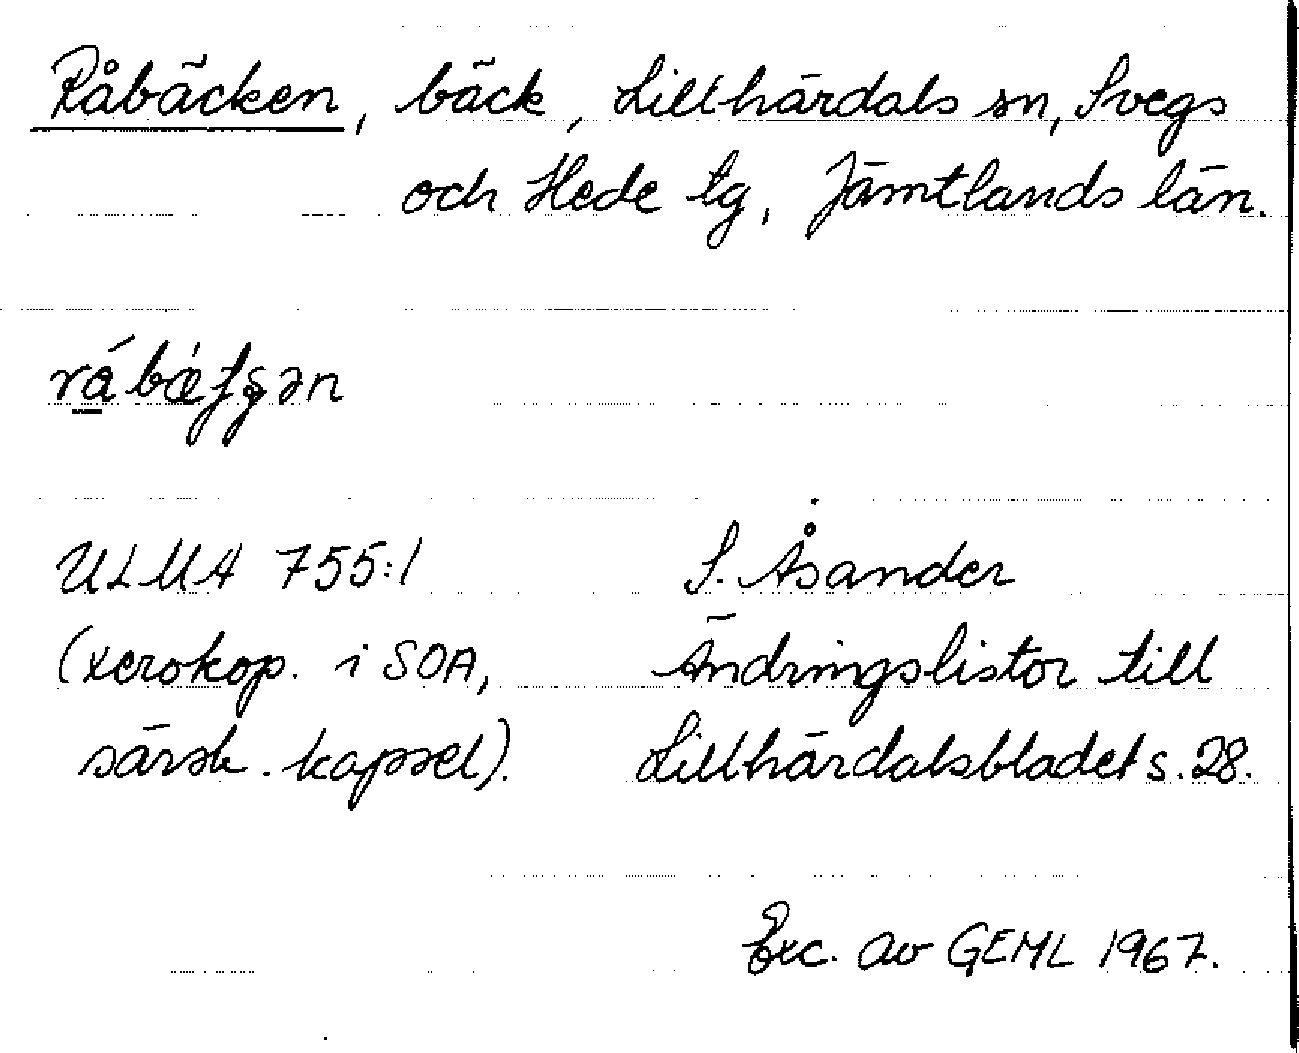 Råbäcken, bäck, Lillhärdals sn, Svegs
och Hede tg, Jämtlands län.
ULMA 755:1 S. Åsander
(xerokop. i SOA, Ändringslistor till
särsk. kapsel). Lillhärdalsbladet s. 28.
Exc. av GEML 1967.